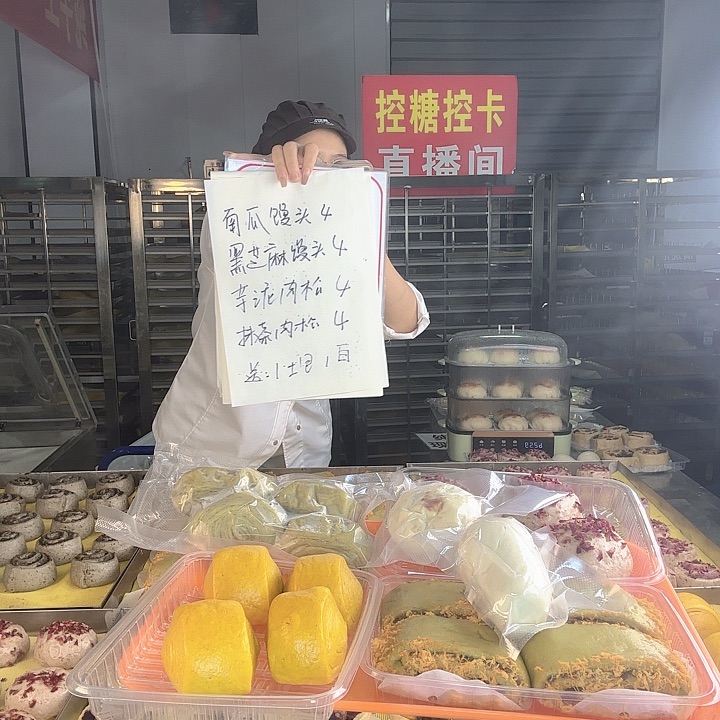 控糖控卡
直播间
南瓜馒头 4
黑芝麻馒头 4
芋泥肉松 4
抹茶肉松 4
送:1土包 1白